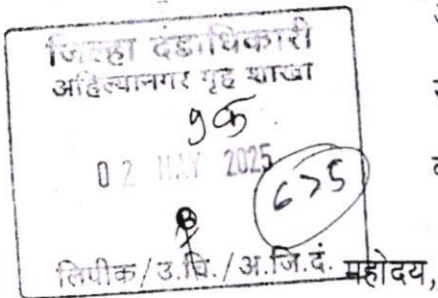 जिल्हा दंडाधिकारी
अहिल्यानगर गृह शाखा
१क
02 MAY 2025
675
लिपीक/उ.चि./अ.जि.दं. महोदय,